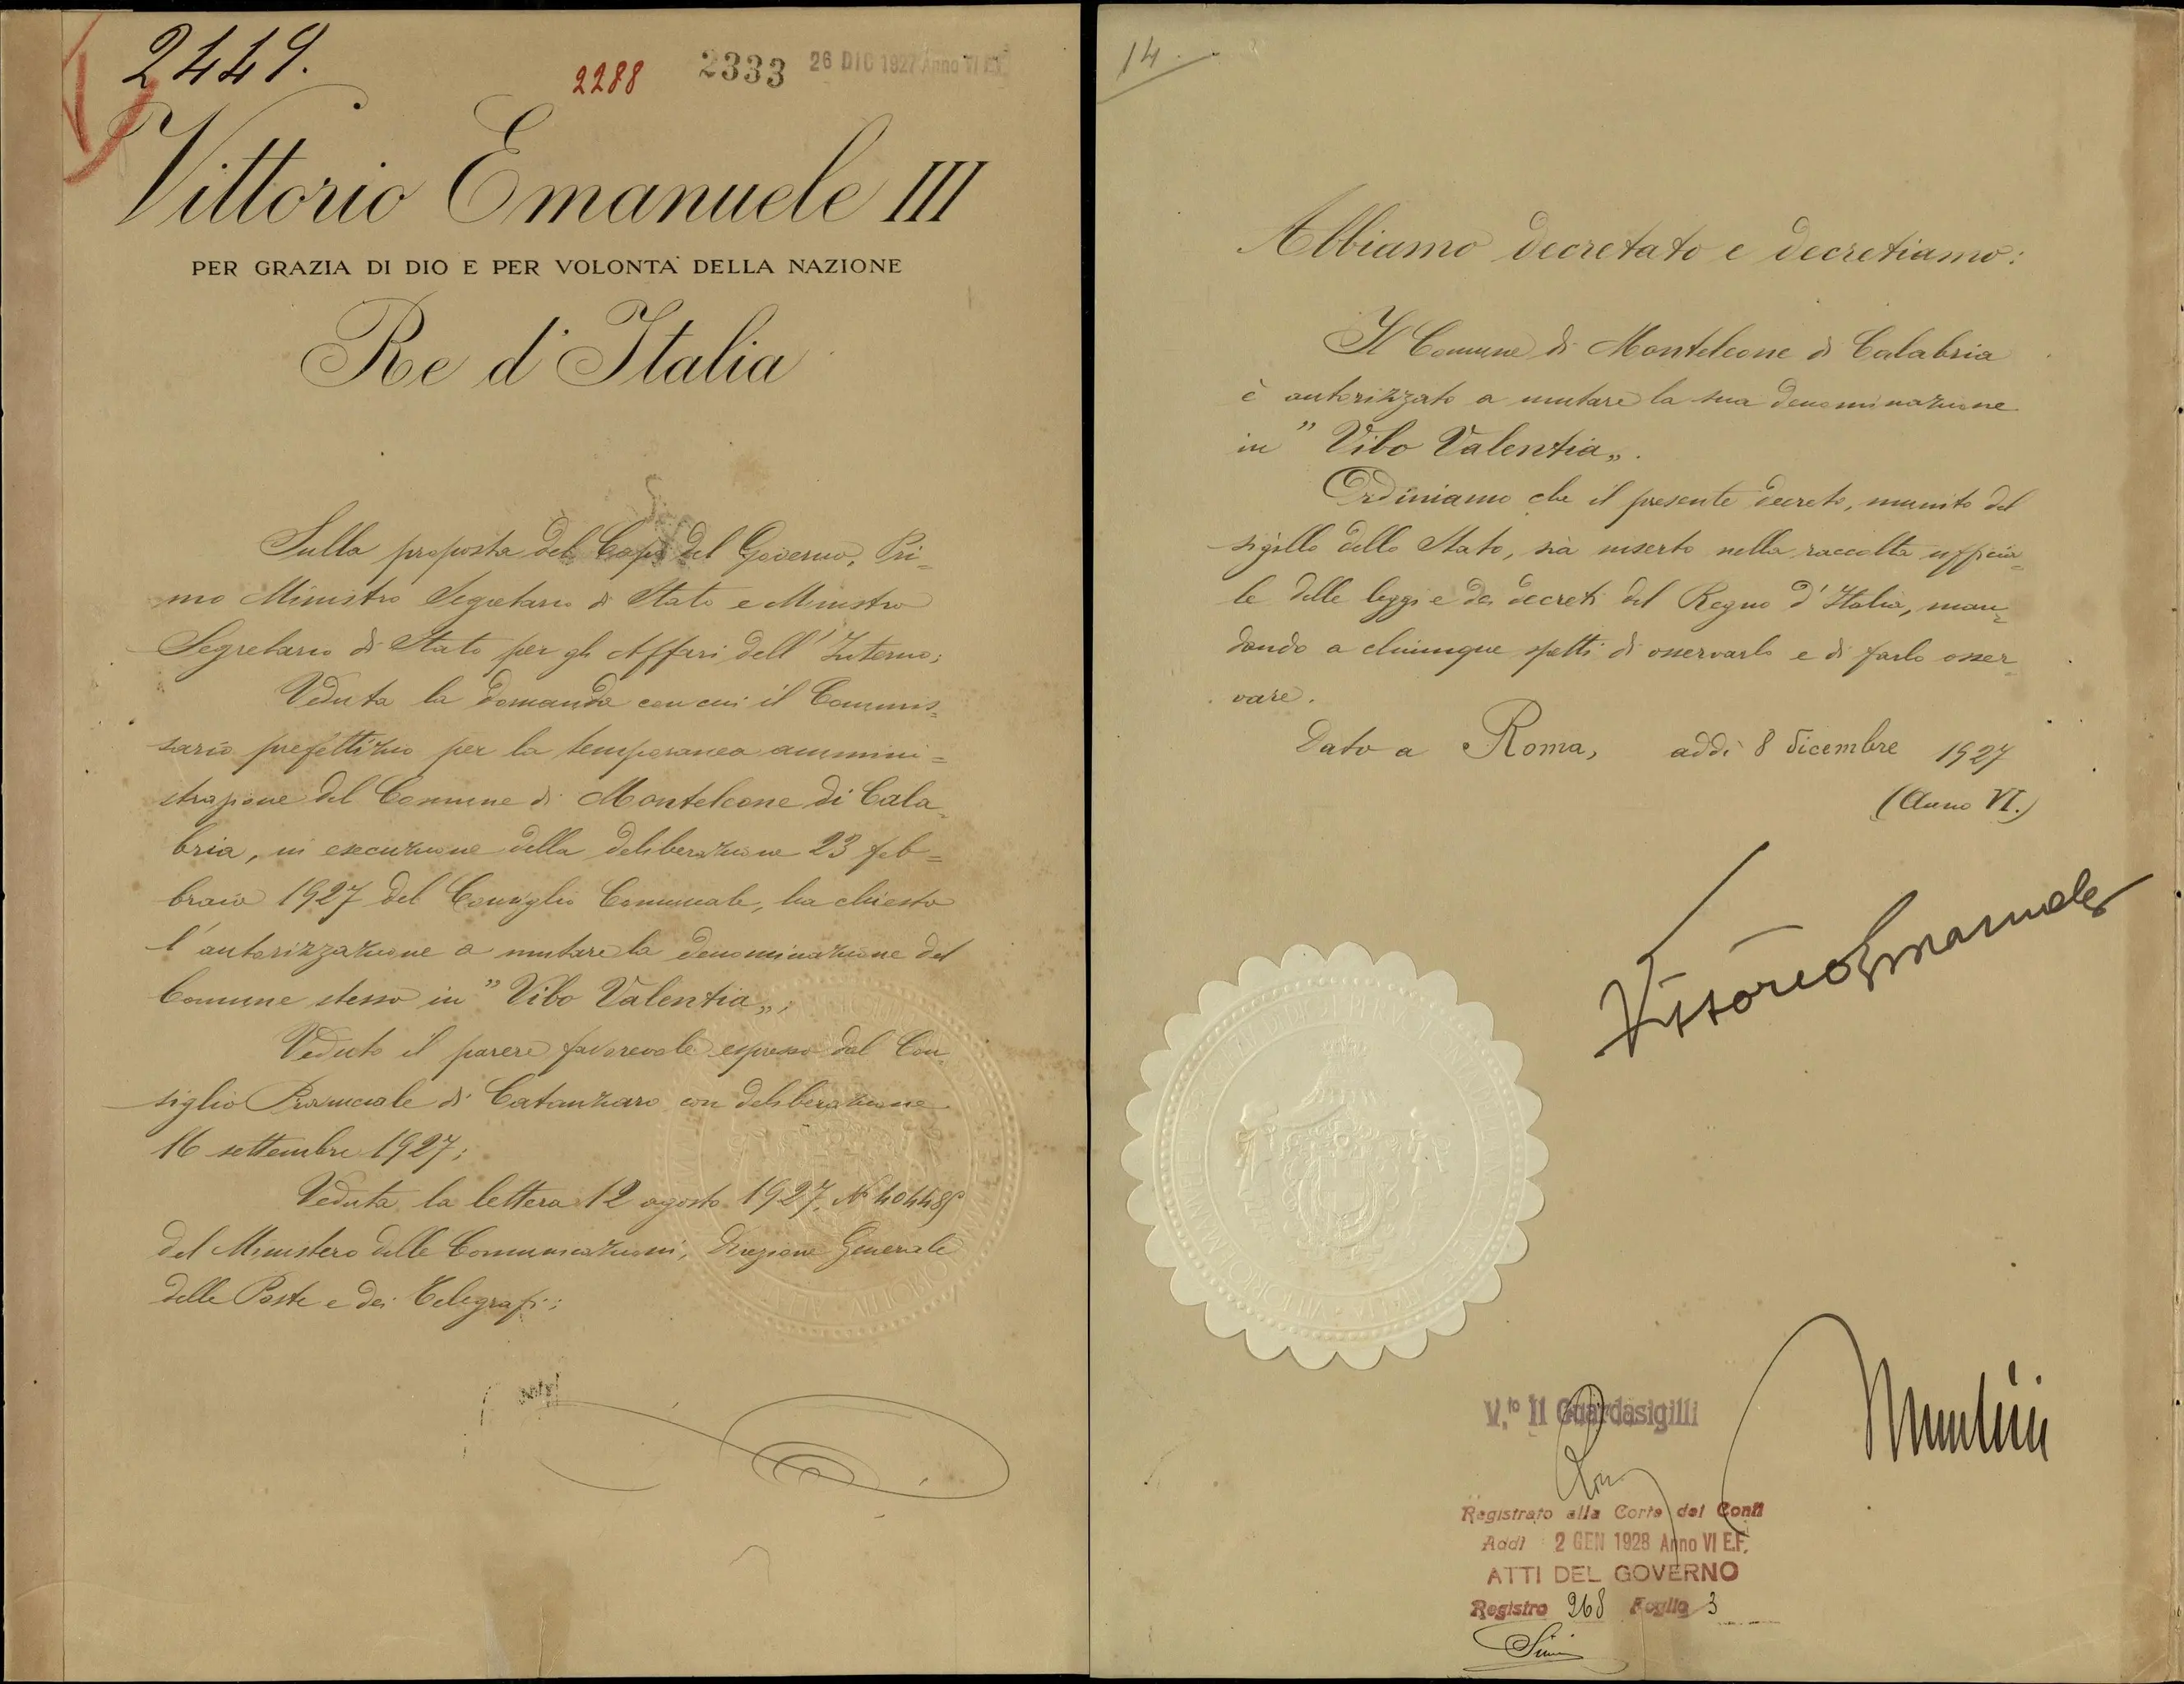 2449.
2288
2333
26 DIC 1927 Anno VI
Vittorio Emanuele III
PER GRAZIA DI DIO E PER VOLONTÀ DELLA NAZIONE
Re d'Italia
Sulla proposta del Capo del Governo, Pri=
mo Ministro Segretario di Stato e Ministro
Segretario di Stato per gli Affari dell'Interno;
Veduta la domanda con cui il Commis=
sario prefettizio per la temporanea ammini=
strazione del Comune di Monteleone di Cala=
bria, in esecuzione della deliberazione 23 feb=
braio 1927 del Consiglio Comunale, ha chiesto
l'autorizzazione a mutare la denominazione del
Comune stesso in "Vibo Valentia„;
Veduto il parere favorevole espresso dal Con=
siglio Provinciale di Catanzaro con deliberazione
16 settembre 1927;
Veduta la lettera 12 agosto 1927, N°
del Ministero delle Comunicazioni, Direzione Generale
delle Poste e dei Telegrafi;
14.
Abbiamo decretato e decretiamo:
Il Comune di Monteleone di Calabria
è autorizzato a mutare la sua denominazione
in "Vibo Valentia„.
Ordiniamo che il presente decreto, munito del
sigillo dello Stato, sia inserto nella raccolta ufficia=
le delle leggi e dei decreti del Regno d'Italia, man=
dando a chiunque spetti di osservarlo e di farlo osser=
vare.
Dato a Roma, addì 8 dicembre 1927
(Anno VI.)
Vittorio Emanuele
Mussolini
V.to Il Guardasigilli
Registrato alla Corte dei Conti
Addì 2 GEN 1928 Anno VI E.F.
ATTI DEL GOVERNO
Registro 268 Foglio 3